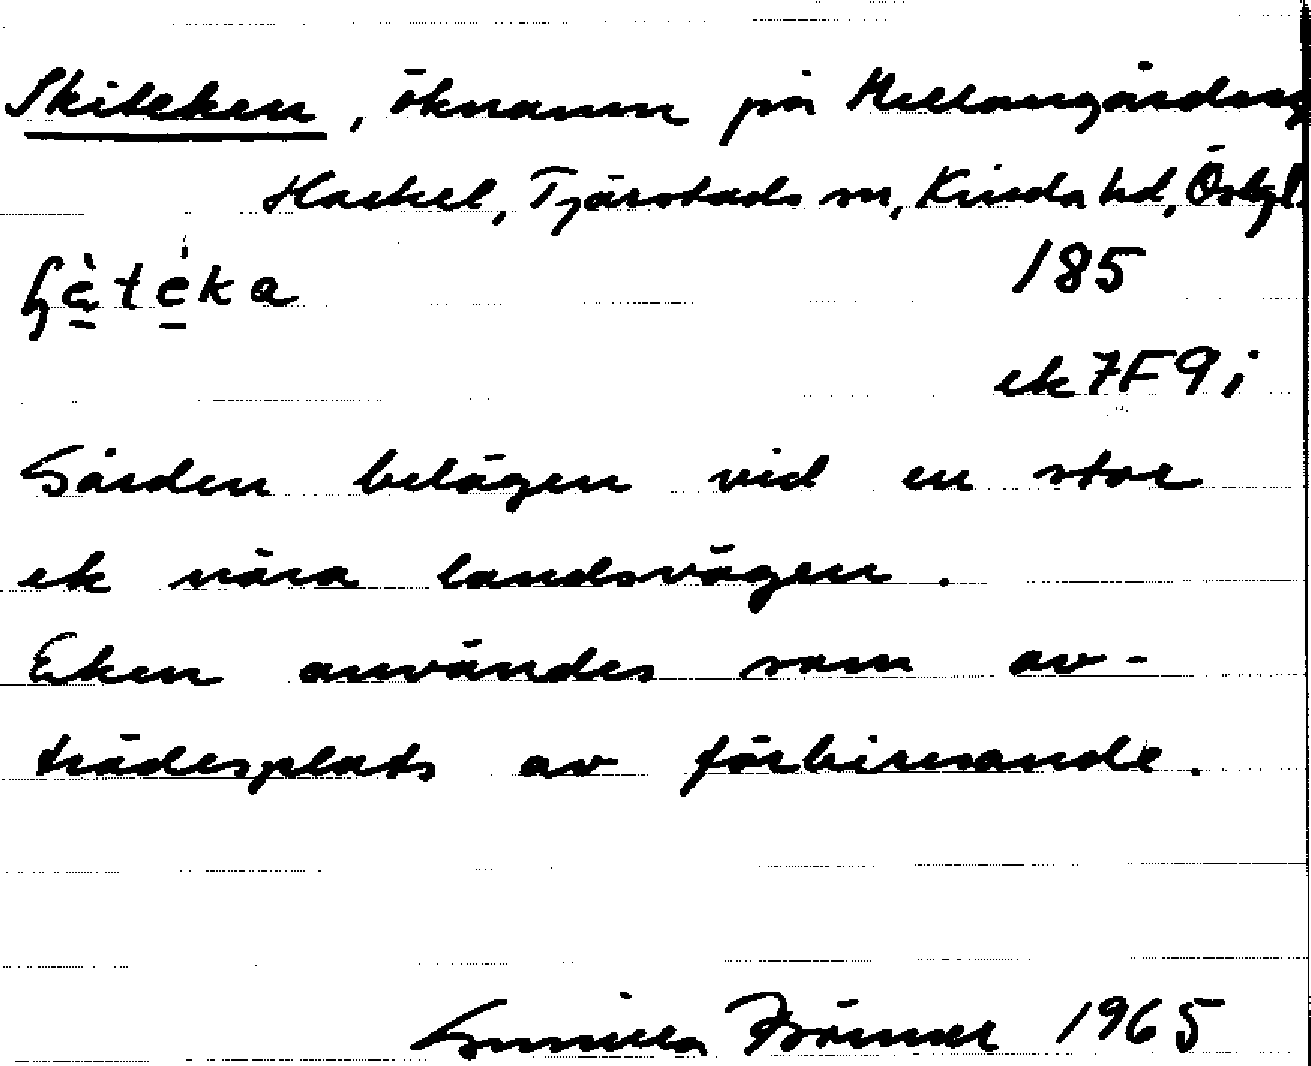 Skiteken, öknamn på Mellangården,
Hackel, Tjärstads sn, Kinda hd, Östgl.
185
ek 7F 9i
Gården belägen vid en stor
ek nära landsvägen.
Eken användes som av-
trädesplats av förbiresande.
Gunilla 1965